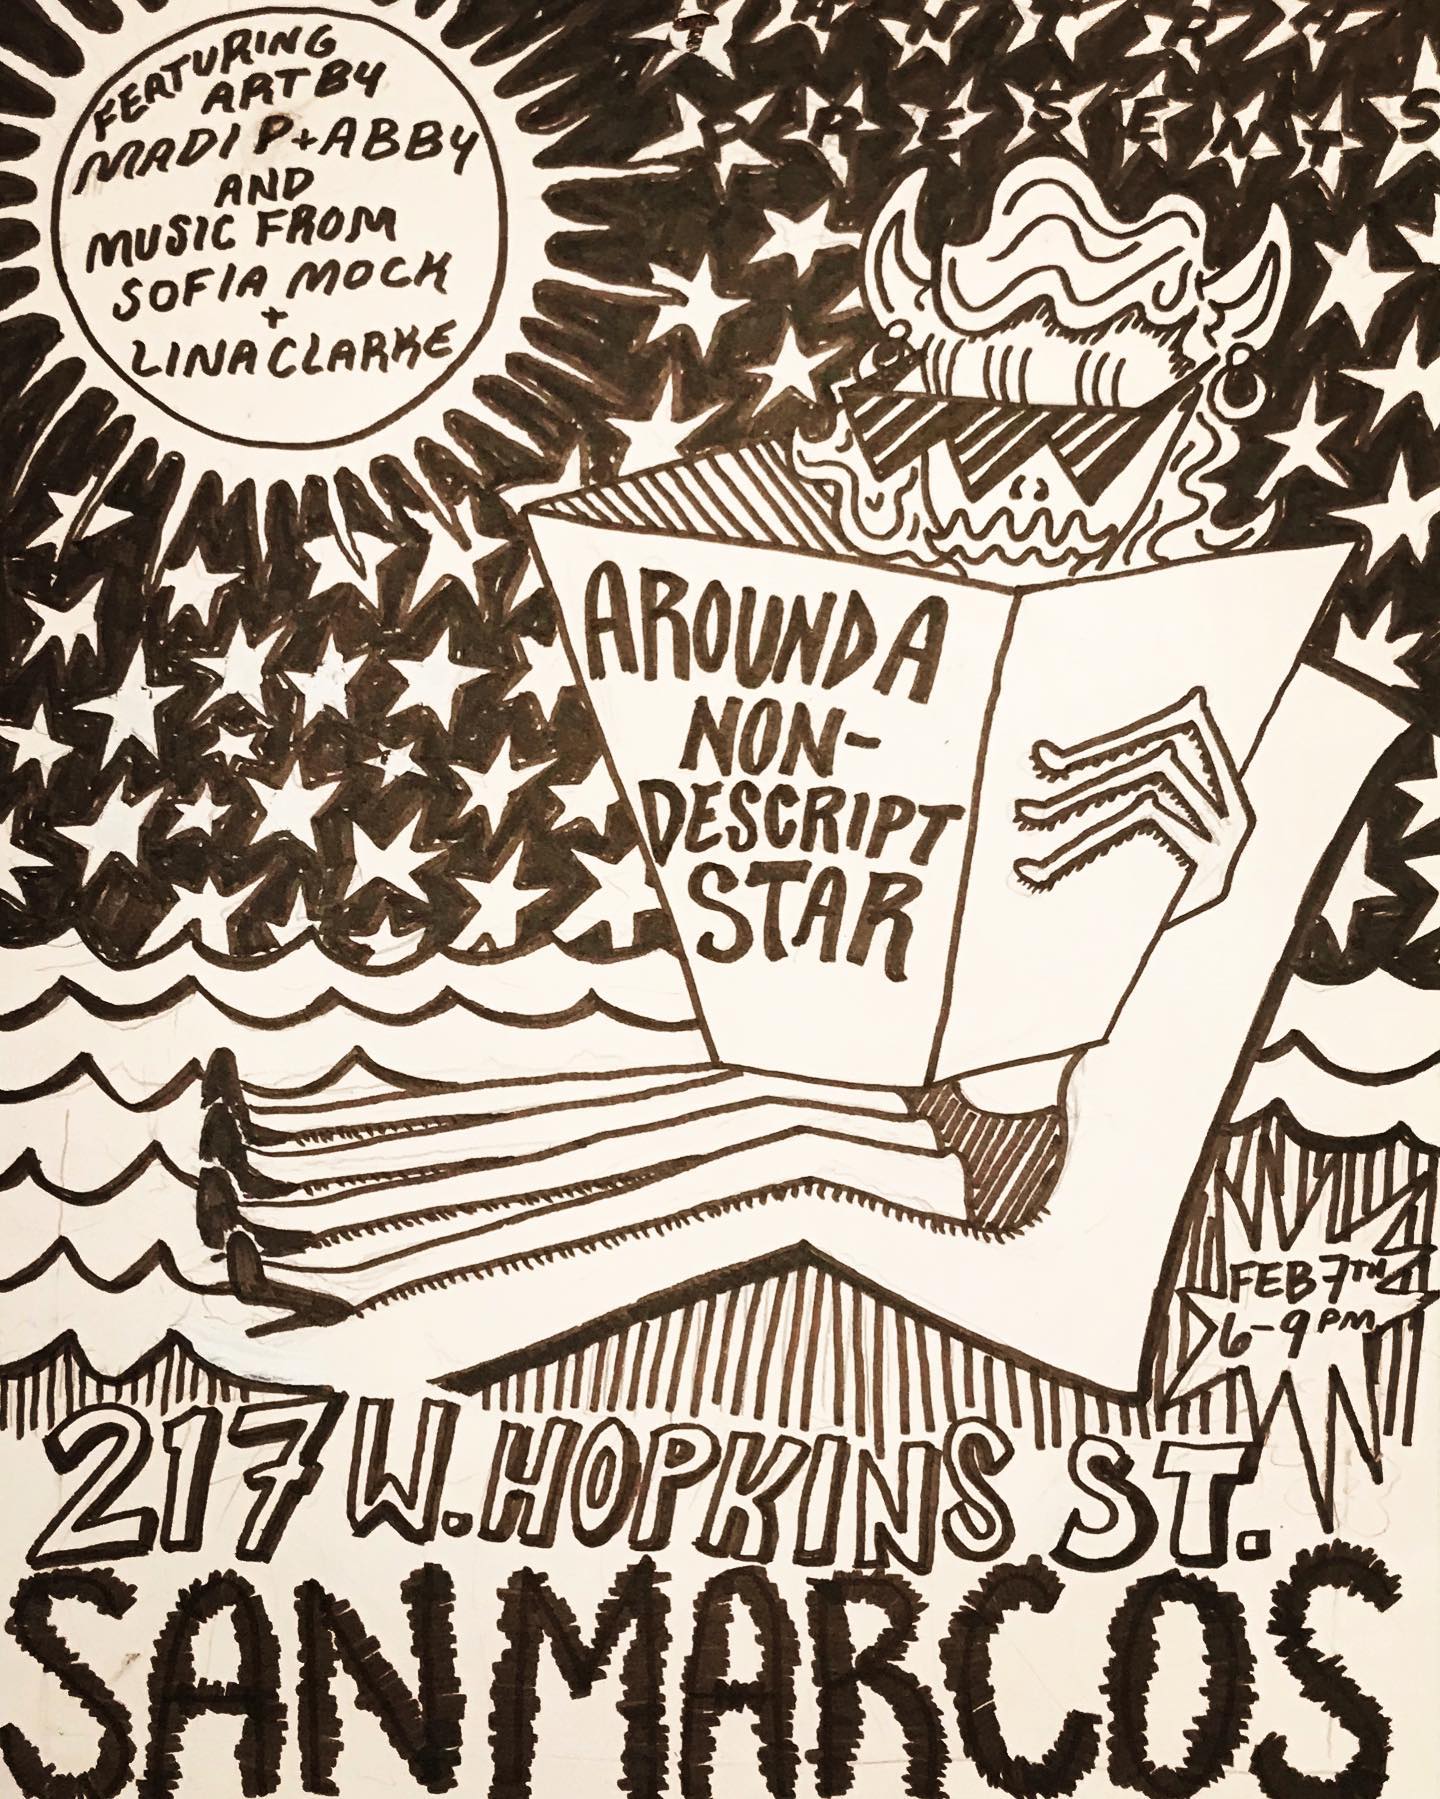 PRESENTS
FEATURING
ART BY
MADI P + ABBY
AND
MUSIC FROM
SOFIA MOCK
+
LINA CLARKE
AROUND A
NON-
DESCRIPT
STAR
FEB 7TH
6-9 PM
217 W. HOPKINS ST.
SAN MARCOS